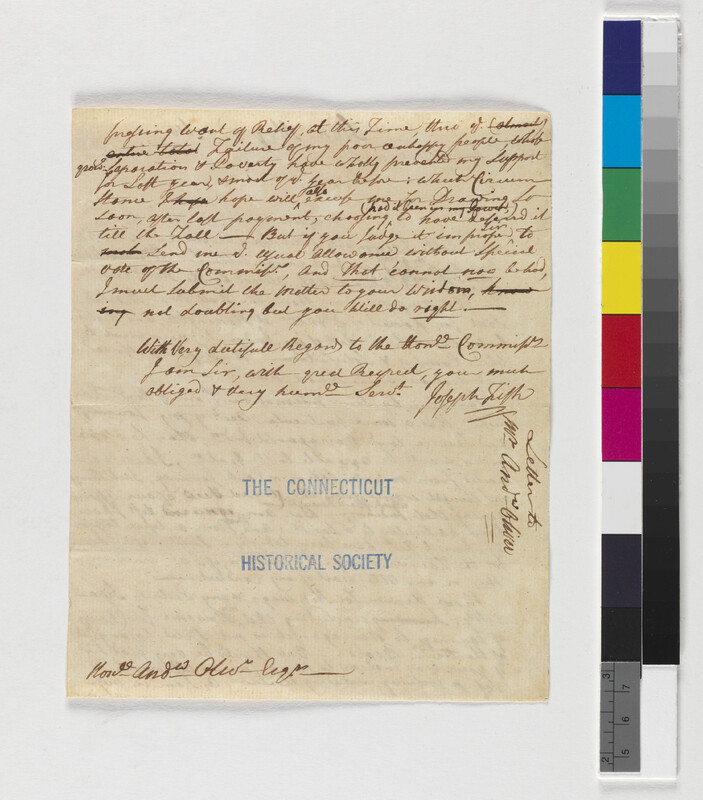 pressing Want of Relief, at this Time, thro' ye. (almost)
entire total Failure of my poor unhappy people, whose
great Separation & Poverty have wholly prevented my Support
for Last year, & most of ye. year before: which Circum
stance I hope hope will, also, excuse me for Drawing So
Soon, after last payment, choosing to have deferred it
had it been in my power,
till the Fall — But if you Judge it improper, Sir, to
Send me ye. usual allowance without Special
vote of the Commissrs, and That cannot now be had,
I must Submit the matter to your Wisdom, know
ing not doubting but you Will do right. —
With Very dutifull Regards to the Honde. Commissrs
I am Sir, with great Respect, your much
obliged & very humle. Servt. Joseph Fish
Letter to
Mr. Andw. Oliver
THE CONNECTICUT
HISTORICAL SOCIETY
Honle. Andw. Olivr. Esqr.